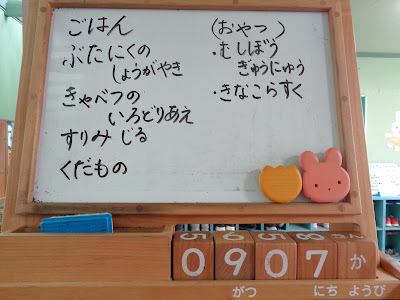 ごはん
ぶたにくの
しょうがやき
きゃべつの
いろどりあえ
すりみじる
くだもの
(おやつ)
・むしぼう
ぎゅうにゅう
・きなこらすく
0907か
がつ にち ようび